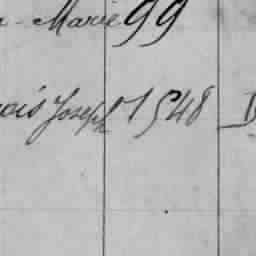 Marie 99
Joseph 1548